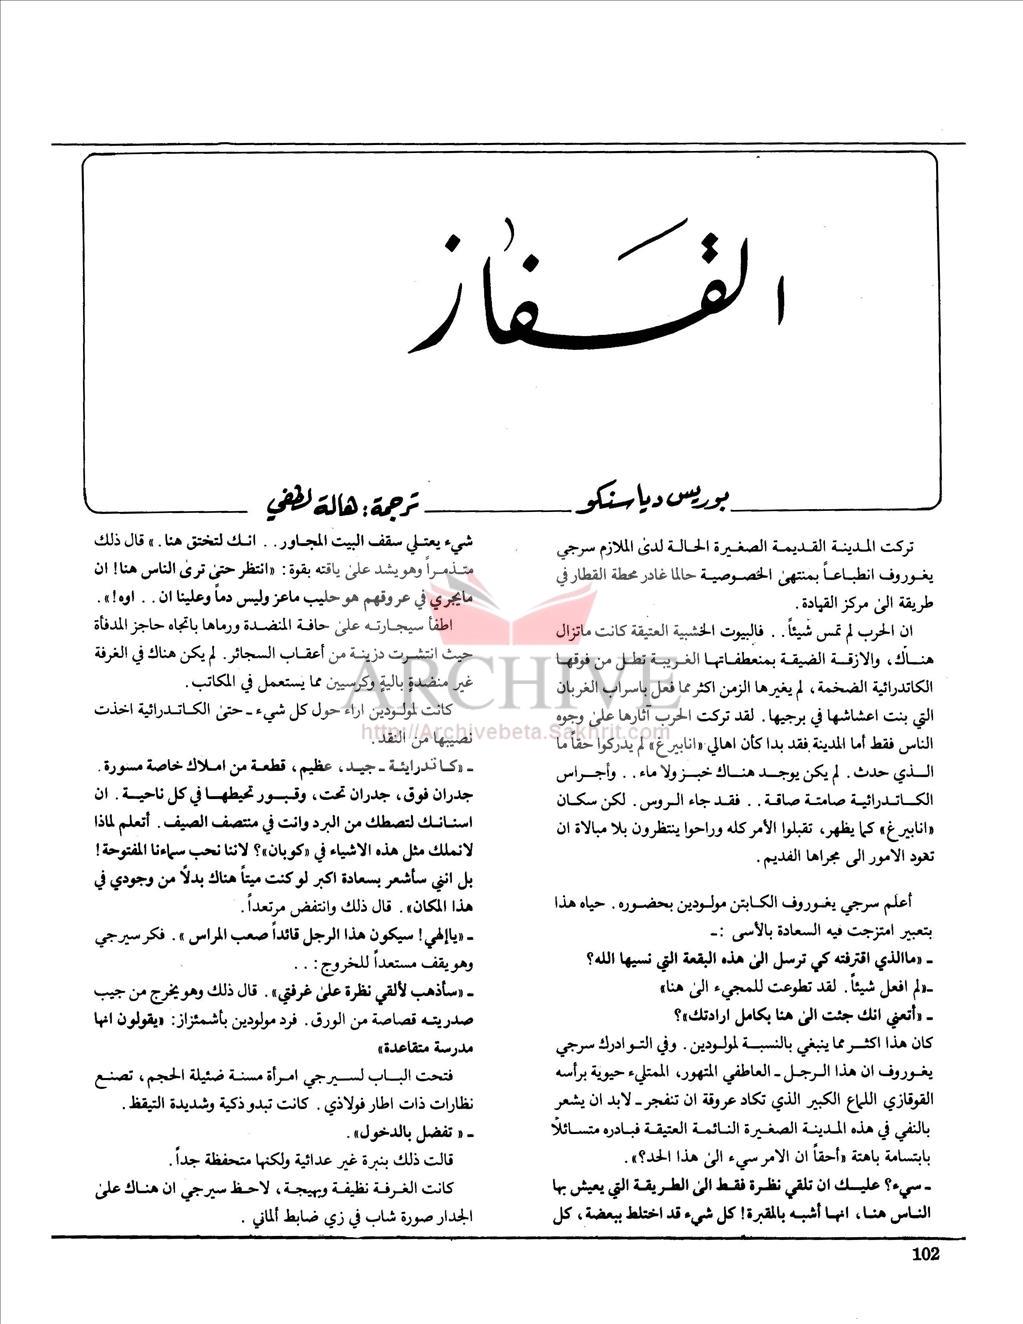 القفاز
بوريس دياسنكو
ترجمة: هالة لطفي
تركت المدينة القديمة الصغيرة الحالة لدى الملازم سرجي
يغوروف انطباعاً بمنتهى الخصوصية حالما غادر محطة القطار في
طريقة الى مركز القيادة.
ان الحرب لم تمس شيئاً.. فالبيوت الخشبية العتيقة كانت ماتزال
هناك، والازقة الضيقة بمنعطفاتها الغريبة تطل من فوقها
الكاتدرائية الضخمة، لم يغيرها الزمن اكثر مما فعل بأسراب الغربان
التي بنت اعشاشها في برجيها. لقد تركت الحرب آثارها على وجوه
الناس فقط أما المدينة فقد بدا كأن اهالي «انابيرغ» لم يدركوا حقاً ما
الذي حدث. لم يكن يوجد هناك خبز ولا ماء.. وأجراس
الكاتدرائية صامتة صاقة.. فقد جاء الروس. لكن سكان
«انابيرغ» كما يظهر، تقبلوا الأمر كله وراحوا ينتظرون بلا مبالاة ان
تهود الامور الى مجراها الفديم.
أعلم سرجي يغوروف الكابتن مولودين بحضوره. حياه هذا
بتعبير امتزجت فيه السعادة بالأسى :ـ
ـ «ماالذي اقترفته كي ترسل الى هذه البقعة التي نسيها الله؟
ـ «لم افعل شيئاً. لقد تطوعت للمجيء الى هنا»
ـ «أتعني انك جئت الى هنا بكامل ارادتك»؟
كان هذا اكثر مما ينبغي بالنسبة لمولودين. وفي التو ادرك سرجي
يغوروف ان هذا الرجل ـ العاطفي المتهور، الممتليء حيوية برأسه
القوقازي اللماع الكبير الذي تكاد عروقة ان تنفجر ـ لابد ان يشعر
بالنفي في هذه المدينة الصغيرة النائمة العتيقة فبادره متسائلاً
بابتسامة باهتة «أحقاً ان الامر سيء الى هذا الحد؟».
ـ سيء؟ عليك ان تلقي نظرة فقط الى الطريقة التي يعيش بها
الناس هنا، انها أشبه بالمقبرة! كل شيء قد اختلط ببعضة، كل
شيء يعتلي سقف البيت المجاور.. انك لتختق هنا.» قال ذلك
متذمراً وهو يشد على ياقته بقوة: «انتظر حتى ترى الناس هنا! ان
مايجري في عروقهم هو حليب ماعز وليس دماً وعلينا ان.. اوه!».
اطفأ سيجارته على حافة المنضدة ورماها باتجاه حاجز المدفأة
حيث انتشرت دزينة من أعقاب السجائر. لم يكن هناك في الغرفة
غير منضدة بالية وكرسيين مما يستعمل في المكاتب.
كانت لمولودين اراء حول كل شيء ـ حتى الكاتدرائية اخذت
نصيبها من النقد.
ـ «كاتدرائية ـ جيد، عظيم، قطعة من املاك خاصة مسورة.
جدران فوق، جدران تحت، وقبور تحيطها في كل ناحية. ان
اسنانك لتصطك من البرد وانت في منتصف الصيف. أتعلم لماذا
لانملك مثل هذه الاشياء في «كوبان»؟ لاننا نحب سماءنا المفتوحة!
بل انني سأشعر بسعادة اكبر لو كنت ميتاً هناك بدلاً من وجودي في
هذا المكان». قال ذلك وانتفض مرتعداً.
ـ «ياإلهي! سيكون هذا الرجل قائداً صعب المراس». فكر سيرجي
وهو يقف مستعداً للخروج:..
ـ «سأذهب لألقي نظرة على غرفتي». قال ذلك وهو يخرج من جيب
صدريته قصاصة من الورق. فرد مولودين بأشمئزاز: «يقولون انها
مدرسة متقاعدة»
فتحت الباب لسيرجي امرأة مسنة ضئيلة الحجم، تصنع
نظارات ذات اطار فولاذي. كانت تبدو ذكية وشديدة التيقظ.
ـ «تفضل بالدخول».
قالت ذلك بنبرة غير عدائية ولكنها متحفظة جداً.
كانت الغرفة نظيفة وبهيجة، لاحظ سيرجي ان هناك على
الجدار صورة شاب في زي ضابط ألماني.
ARCHIVE
http://Archivebeta.Sakhrit.com
102